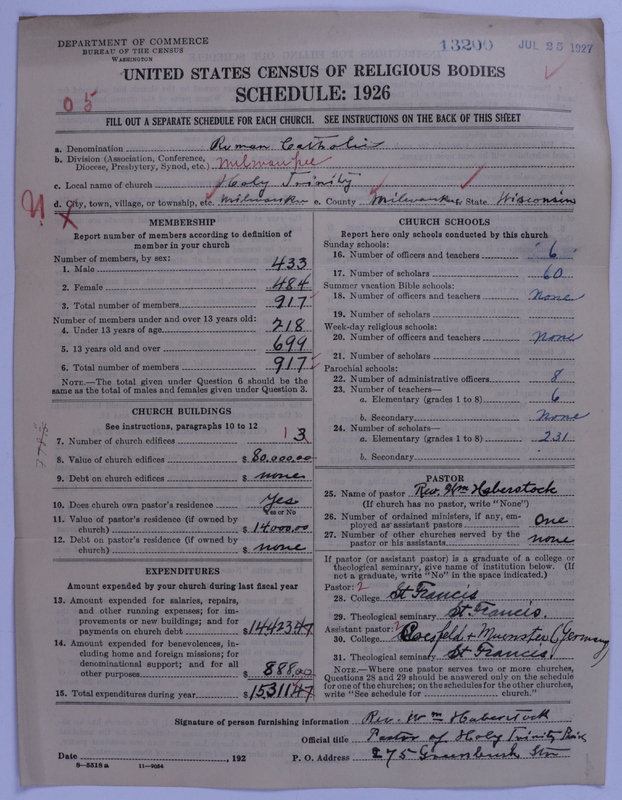 DEPARTMENT OF COMMERCE
BUREAU OF THE CENSUS
WASHINGTON
13200 JUL 25 1927
UNITED STATES CENSUS OF RELIGIOUS BODIES
SCHEDULE: 1926
05
FILL OUT A SEPARATE SCHEDULE FOR EACH CHURCH. SEE INSTRUCTIONS ON THE BACK OF THIS SHEET
a. Denomination Roman Catholic
b. Division (Association, Conference, Diocese, Presbytery, Synod, etc.) Milwaukee
c. Local name of church Holy Trinity
d. City, town, village, or township, etc. Milwaukee e. County Milwaukee State Wisconsin
MEMBERSHIP
Report number of members according to definition of
member in your church
Number of members, by sex:
1. Male 433
2. Female 484
3. Total number of members 917
Number of members under and over 13 years old:
4. Under 13 years of age 218
5. 13 years old and over 699
6. Total number of members 917
NOTE.—The total given under Question 6 should be
same as the total of males and females given under Question 3.
CHURCH BUILDINGS
See instructions, paragraphs 10 to 12
7. Number of church edifices 1 3
8. Value of church edifices $ 80.000.00
9. Debt on church edifices $ none
10. Does church own pastor's residence Yes
Yes or No
11. Value of pastor's residence (if owned by
church) $ 14000.00
12. Debt on pastor's residence (if owned by
church) $ none
EXPENDITURES
Amount expended by your church during last fiscal year
13. Amount expended for salaries, repairs,
and other running expenses; for im-
provements or new buildings; and for
payments on church debt $ 14423 47
14. Amount expended for benevolences, in-
cluding home and foreign missions; for
denominational support; and for all
other purposes $ 888.00
15. Total expenditures during year $ 15311 47
CHURCH SCHOOLS
Report here only schools conducted by this church
Sunday schools:
16. Number of officers and teachers 6
17. Number of scholars 60
Summer vacation Bible schools:
18. Number of officers and teachers None
19. Number of scholars
Week-day religious schools:
20. Number of officers and teachers None
21. Number of scholars
Parochial schools:
22. Number of administrative officers 8
23. Number of teachers—
a. Elementary (grades 1 to 8) 6
b. Secondary None
24. Number of scholars—
a. Elementary (grades 1 to 8) 231
b. Secondary
PASTOR
25. Name of pastor Rev. Wm Haberstock
(If church has no pastor, write "None")
26. Number of ordained ministers, if any, em-
ployed as assistant pastors One
27. Number of other churches served by the
pastor or his assistants none
If pastor (or assistant pastor) is a graduate of a college or
theological seminary, give name of institution below. (If
not a graduate, write "No" in the space indicated.)
Pastor: 2
28. College St Francis
29. Theological seminary St Francis
Assistant pastor: 2
30. College + Muenster (Germany)
31. Theological seminary St Francis
NOTE.—Where one pastor serves two or more churches,
Questions 28 and 29 should be answered only on the schedule
for one of the churches; on the schedules for the other churches,
write "See schedule for church."
Signature of person furnishing information Rev. Wm Haberstock
Official title Pastor of Holy Trinity
Date , 192 P. O. Address 275 Greenbush
8—5518 a 11—9064